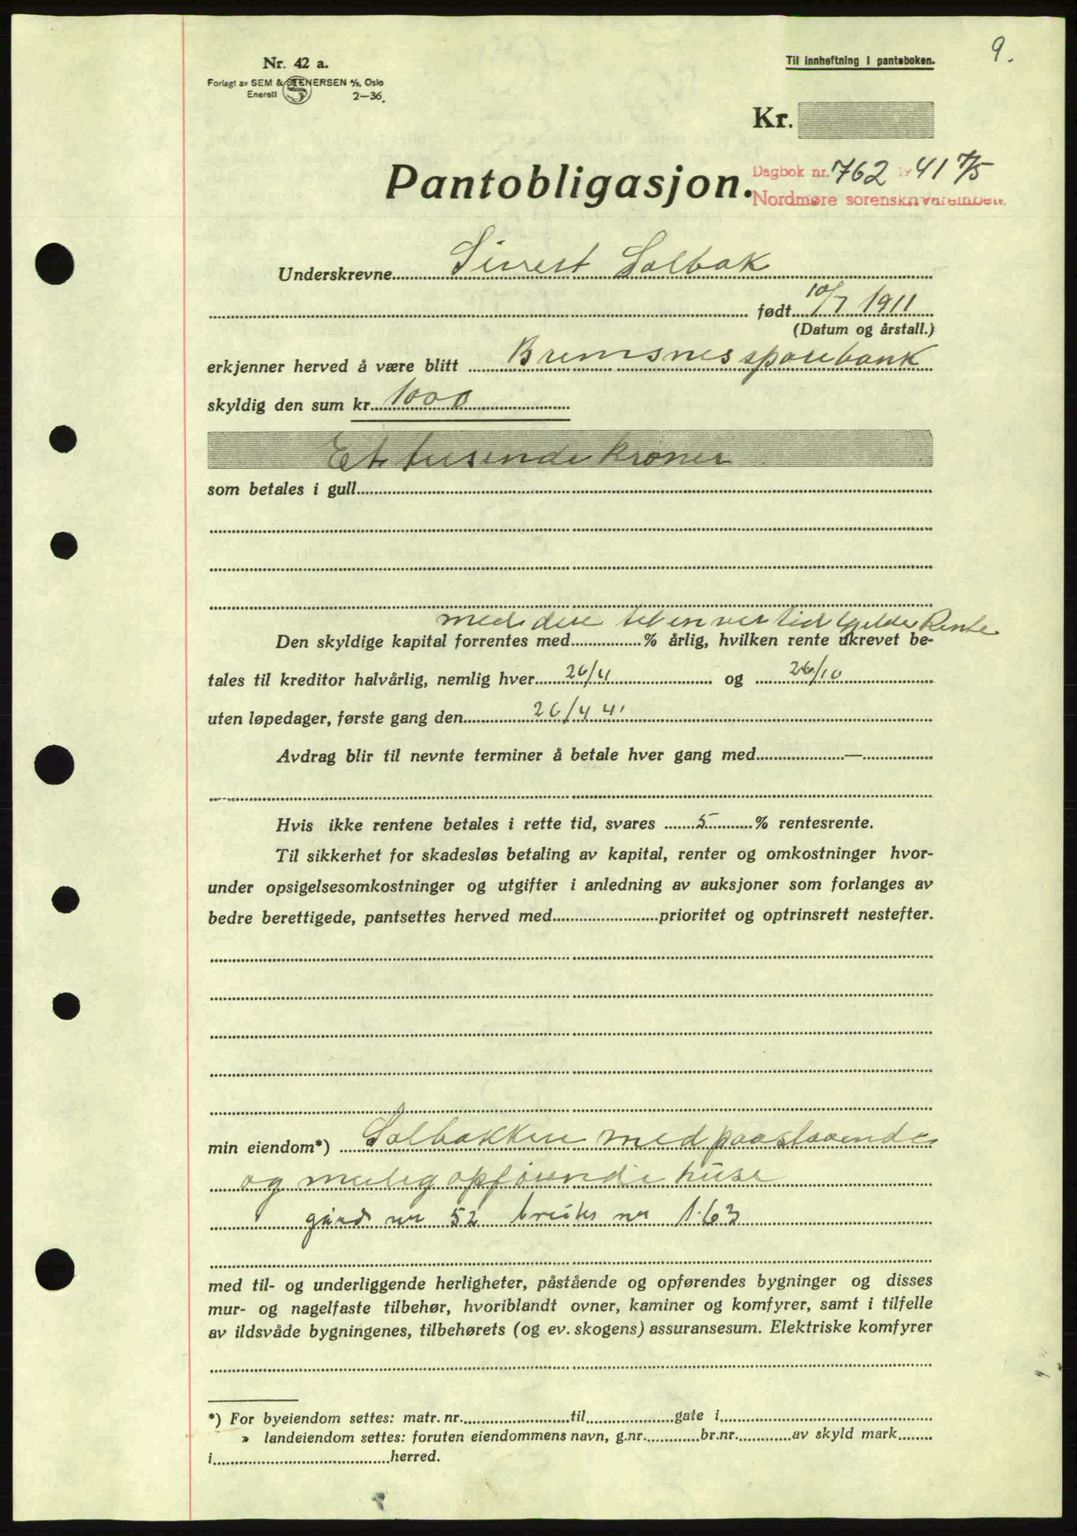 9.
Nr. 42 a.
Til innheftning i panteboken.
Forlagt av SEM & STENERSEN A/S, Oslo
Enerett 2—36.
Kr.
Pantobligasjon.
Dagbok nr. 762 19 41 7/5
Nordmøre sorenskriverembete.
Underskrevne Sivert Solbak
født 10/7 1911
(Datum og årstall.)
erkjenner herved å være blitt Bremsnes sparebank
skyldig den sum kr. 1000
Et tusende kroner
som betales i gull
med den til en ver tid Gjeldes Rente
Den skyldige kapital forrentes med % årlig, hvilken rente ukrevet be-
tales til kreditor halvårlig, nemlig hver 26/4 og 26/10
uten løpedager, første gang den 26/4 41
Avdrag blir til nevnte terminer å betale hver gang med —
Hvis ikke rentene betales i rette tid, svares 5 % rentesrente.
Til sikkerhet for skadesløs betaling av kapital, renter og omkostninger hvor-
under opsigelsesomkostninger og utgifter i anledning av auksjoner som forlanges av
bedre berettigede, pantsettes herved med prioritet og optrinsrett nestefter.
min eiendom*) Solbakken med paastaaende
og mulig opförende huse
gård nr 52 bruks nr 163
med til- og underliggende herligheter, påstående og opførendes bygninger og disses
mur- og nagelfaste tilbehør, hvoriblandt ovner, kaminer og komfyrer, samt i tilfelle
av ildsvåde bygningenes, tilbehørets (og ev. skogens) assuransesum. Elektriske komfyrer
*) For byeiendom settes: matr. nr. til gate i
» landeiendom settes: foruten eiendommens navn, g.nr. br.nr. av skyld mark
i herred.